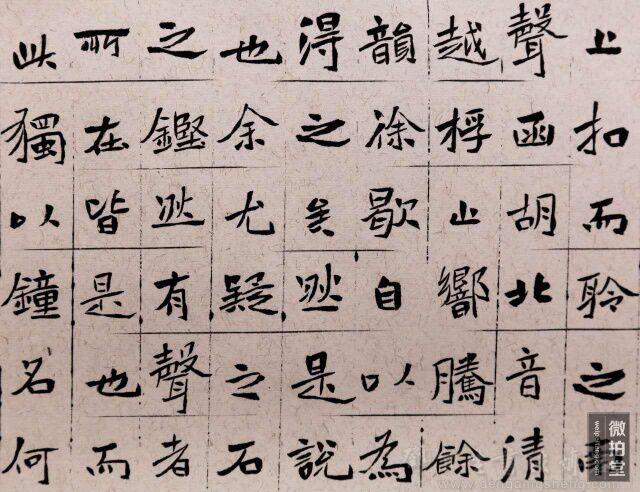 上扣而聆之
聲函胡北音清
越桴止響騰餘
韻徐歇自以為
得之矣然是說
也余尤疑之石
之鏗然有聲者
所在皆是也而
此獨以鐘名何
微拍堂
weipaitang.com